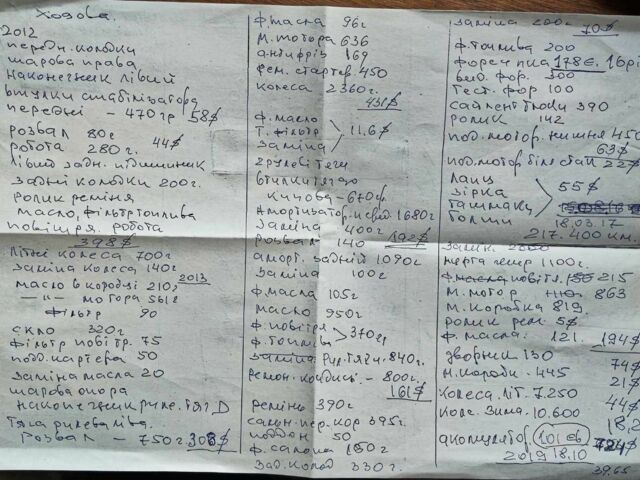 Ходова.
2012
передн. колодки
шарова права
наконечник лівий
втулки стабілізатора
передні - 470гр 58$
розвал 80г
робота 280г. 44$
лівий задн. підшипник
задні колодки 200г.
ролик ременя
масло, фільтр топлива
повітря. робота
398$
Літні колеса 700г
заміна колеса 140г
масло в коробці 210, 2013
-"- мотора 561г
фільтр 90
скло 320г
фільтр повітр. 75
подд. картера 50
заміна масла 20
шарова опора
наконечник руле. тяг. D
тяга рулева ліва.
Розвал - 750г 308$
ф. масла 96г
М. мотора 636
антифріз 169
рем. стартер 450
колеса 2360г.
431$
ф. масло
т. фільтр 11.6$
заміна
рулові тяги
втулки тяг
- 670гр.
Амортизатор 1680г
заміна 400г
розвал 140 192$
аморт. задній 1090г
заміна 100г
ф. масла 105г
масло 950г
ф. повітря
ф. топлива 370гр
заміна рул. тяги. 840г.
ремон. - 800г.
161$
ремінь 390г
салон. пер. кор 395г.
поддон 50
ф. салона 150г
зад. колод 330г.
заміна 200г 70$
ф. топлива 200
178є. 16рі
фор. 300
тест. фор 100
сайлентблоки 390
ролик 142
под. мотор. нижня 45
63$
под. мотор 22$
Ланц
зірка 55$
Болти 18.03.17
217.400 км.
1100г.
повітр. 215
М. мотор 863
М. коробка 819
ролик рем 5$
ф. масла. 121. 194$
дворник 130 74$
М. короби - 445 21$
Колеса літ. 7.250 44$
коле. зима. 10.600
акомулятор 101єв
2019 18.10
39.65